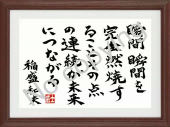 瞬間瞬間を
完全燃焼す
ることでの点
の連続が未来
につながる
稲盛和夫